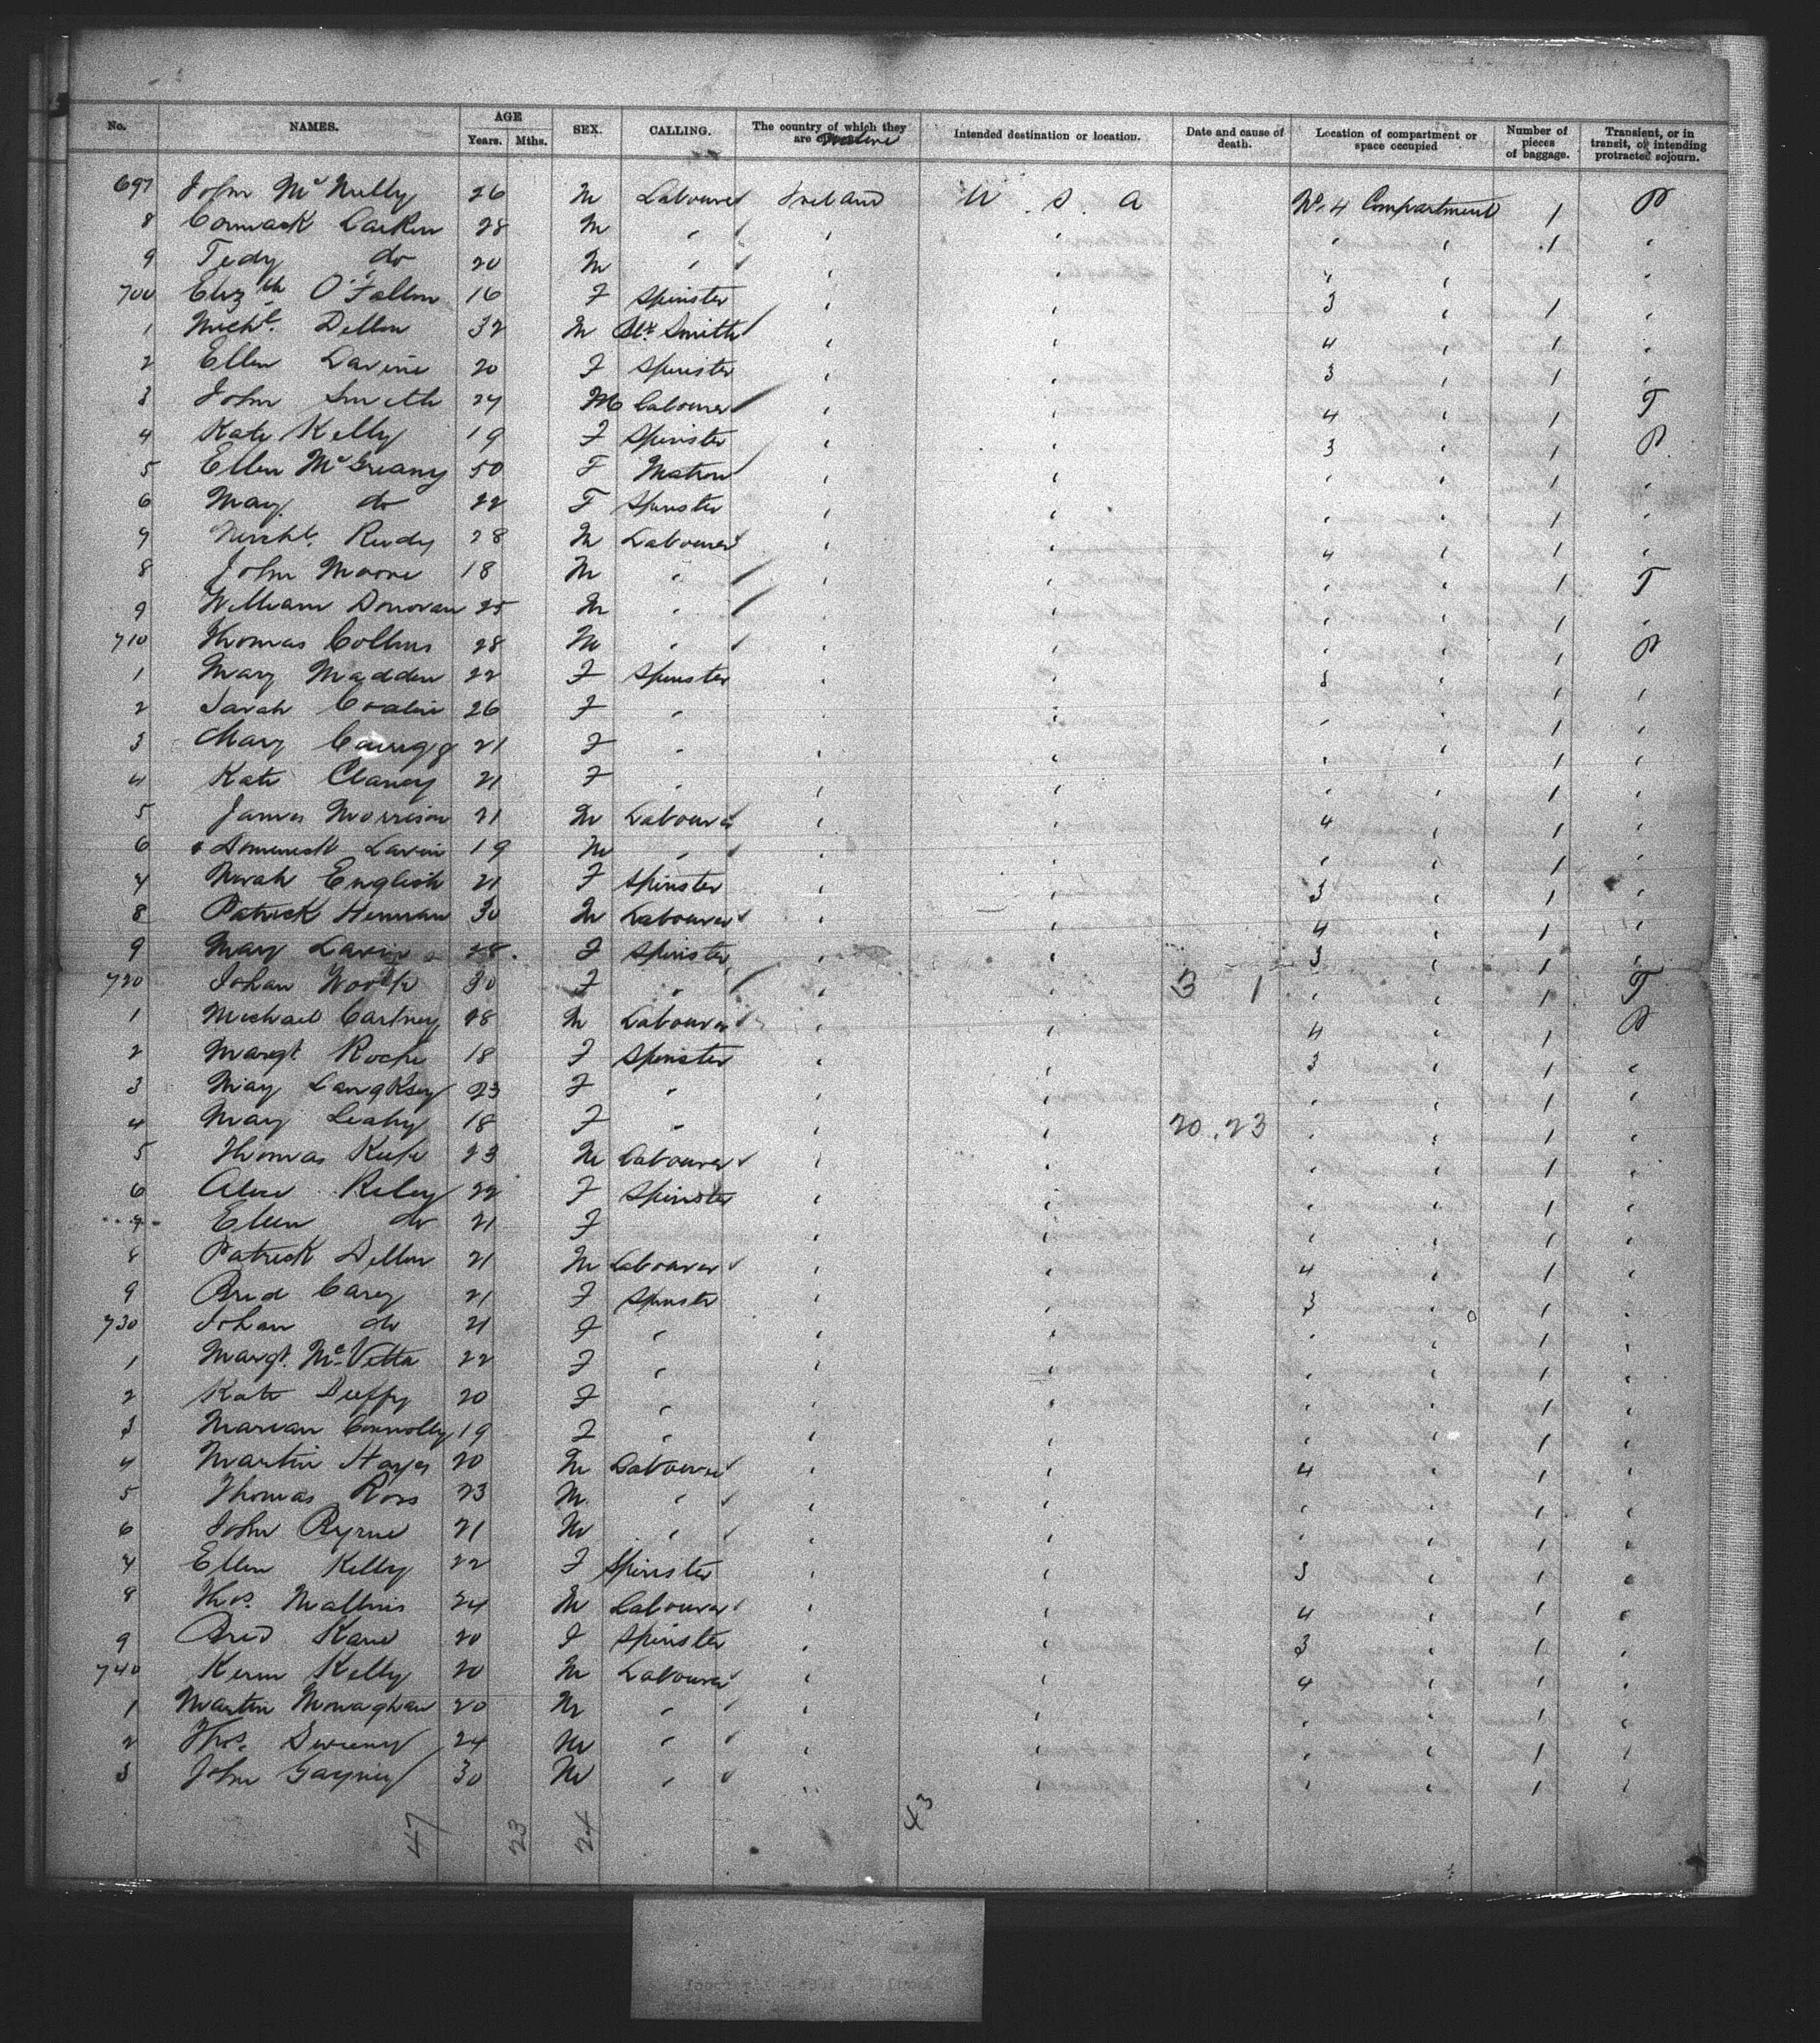 No. NAMES. AGE Years. Mths. SEX. CALLING. The country of which they are native Intended destination or location. Date and cause of death. Location of compartment or space occupied Number of pieces of baggage. Transient, or in transit, or intending protracted sojourn.
697 John McNully 26 M Labourer Ireland U. S. A No. 4 Compartment 1 P
8 Cormack Larkin 28 M " " " " " 1 "
9 Tedy do 20 M " " " " " "
700 Elizth O'Fallon 16 F Spinster " " 3 " 1 "
1 Michl. Dillon 32 M Blk Smith " " 4 " 1 "
2 Ellen Lavine 20 F Spinster " " 3 " 1 "
3 John Smith 24 M Labourer " " 4 " 1 T
4 Kate Kelly 19 F Spinster " " 3 " 1 P
5 Ellen McGreany 50 F Matron " " " " 1 "
6 Mary do 22 F Spinster " " " " 1 "
7 Michl. Rudy 28 M Labourer " " 4 " 1 "
8 John Moore 18 M " " " " " 1 T
9 William Donovan 25 M " " " " " 1 "
710 Thomas Collins 28 M " " " " " 1 P
1 Mary Madden 22 F Spinster " " 3 " 1 "
2 Sarah 26 F " " " " " 1 "
3 Mary 21 F " " " " " 1 "
4 Kate Clancy 21 F " " " " " 1 "
5 James Morrison 21 M Labourer " " 4 " 1 "
6 Domenick Lavin 19 M " " " " " 1 "
7 Norah English 21 F Spinster " " 3 " 1 "
8 Patrick Hennan 30 M Labourer " " 4 " 1 "
9 Mary Lavin 28 F Spinster " " 3 " 1 "
720 Johan 30 F " " " 3 1 " " 1 T
1 Michael Cartney 28 M Labourer " " 4 " 1 P
2 Margt Roche 18 F Spinster " " 3 " 1 "
3 Mary 23 F " " " " " 1 "
4 Mary Leahy 18 F " " " 20.23 " " 1 "
5 Thomas Keefe 23 M Labourer " " " " 1 "
6 Alice Riley 22 F Spinster " " " " 1 "
7 Ellen do 21 F " " " " 1 "
8 Patrick Dillon 21 M Labourer " " 4 " 1 "
9 Brid Carey 21 F Spinster " " 3 " 1 "
730 Johan do 21 F " " " " " 1 "
1 Margt. McVetta 22 F " " " " " 1 "
2 Kate Duffy 20 F " " " " " 1 "
3 Marian Connolly 19 F " " " " " 1 "
4 Martin Hayes 20 M Labourer " " 4 " 1 "
5 Thomas Ross 23 M " " " " " 1 "
6 John Byrne 21 M " " " " " 1 "
7 Ellen Kelly 22 F Spinster " " 3 " 1 "
8 Thos. Mallins 24 M Labourer " " 4 " 1 "
9 Brid Kane 20 F Spinster " " 3 " 1 "
740 Kelly 20 M Labourer " " 4 " 1 "
1 Martin Monaghan 20 M " " " " " 1 "
2 Thos. Sweeny 24 M " " " " " 1 "
3 John 30 M " " " " " 1 "
47 23 24 43